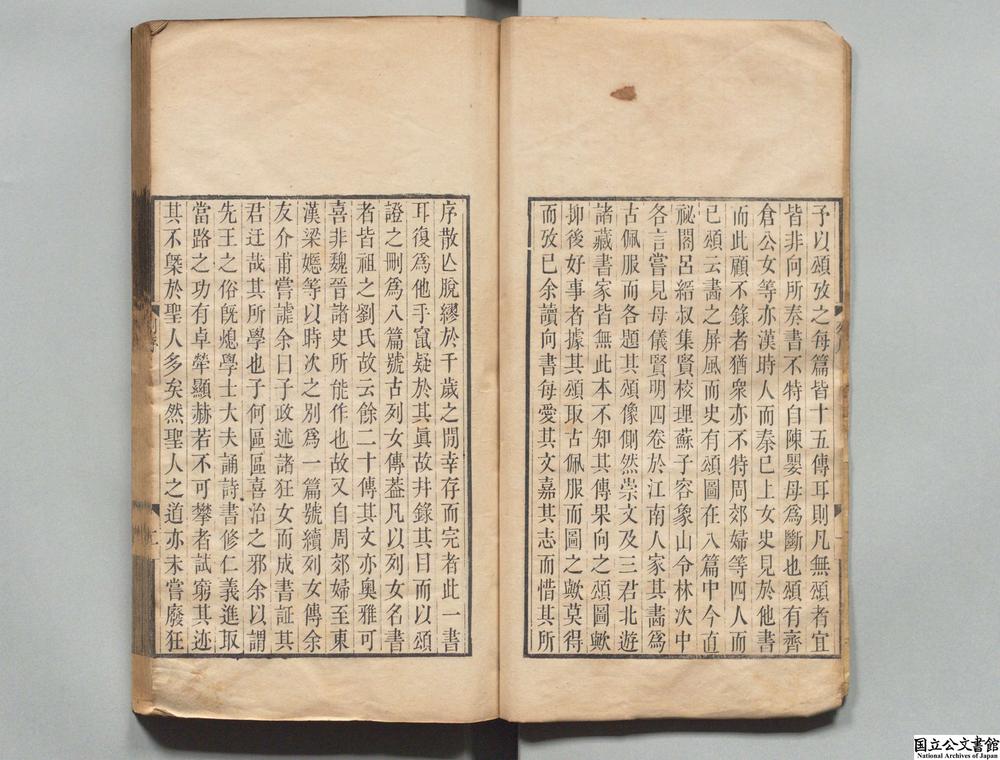 予以頌攷之每篇皆十五傳耳則凡無頌者宜
皆非向所奏書不特自陳嬰母爲斷也頌有齊
倉公女等亦漢時人而秦已上女史見於他書
而此顧不錄者猶衆亦不特周郊婦等四人而
已頌云畵之屏風而史有頌圖在八篇中今直
祕閣呂縉叔集賢校理蘇子容象山令林次中
各言嘗見母儀賢明四卷於江南人家其畵爲
古佩服而各題其頌像側然崇文及三君北遊
諸藏書家皆無此本不知其傳果向之頌圖歟
抑後好事者據其頌取古佩服而圖之歟莫得
而攷已余讀向書每愛其文嘉其志而惜其所
序散亾脫繆於千歲之閒幸存而完者此一書
耳復爲他手竄疑於其眞故幷錄其目而以頌
證之刪爲八篇號古列女傳葢凡以列女名書
者皆祖之劉氏故云餘二十傳其文亦奧雅可
喜非魏晉諸史所能作也故又自周郊婦至東
漢梁嫕等以時次之別爲一篇號續列女傳余
友介甫嘗謔余曰子政述諸狂女而成書証其
君迂哉其所學也子何區區喜治之邪余以謂
先王之俗旣熄學士大夫誦詩書修仁義進取
當路之功有卓犖顯赫若不可攀者試窮其迹
其不槩於聖人多矣然聖人之道亦未嘗廢狂
国立公文書館
National Archives of Japan